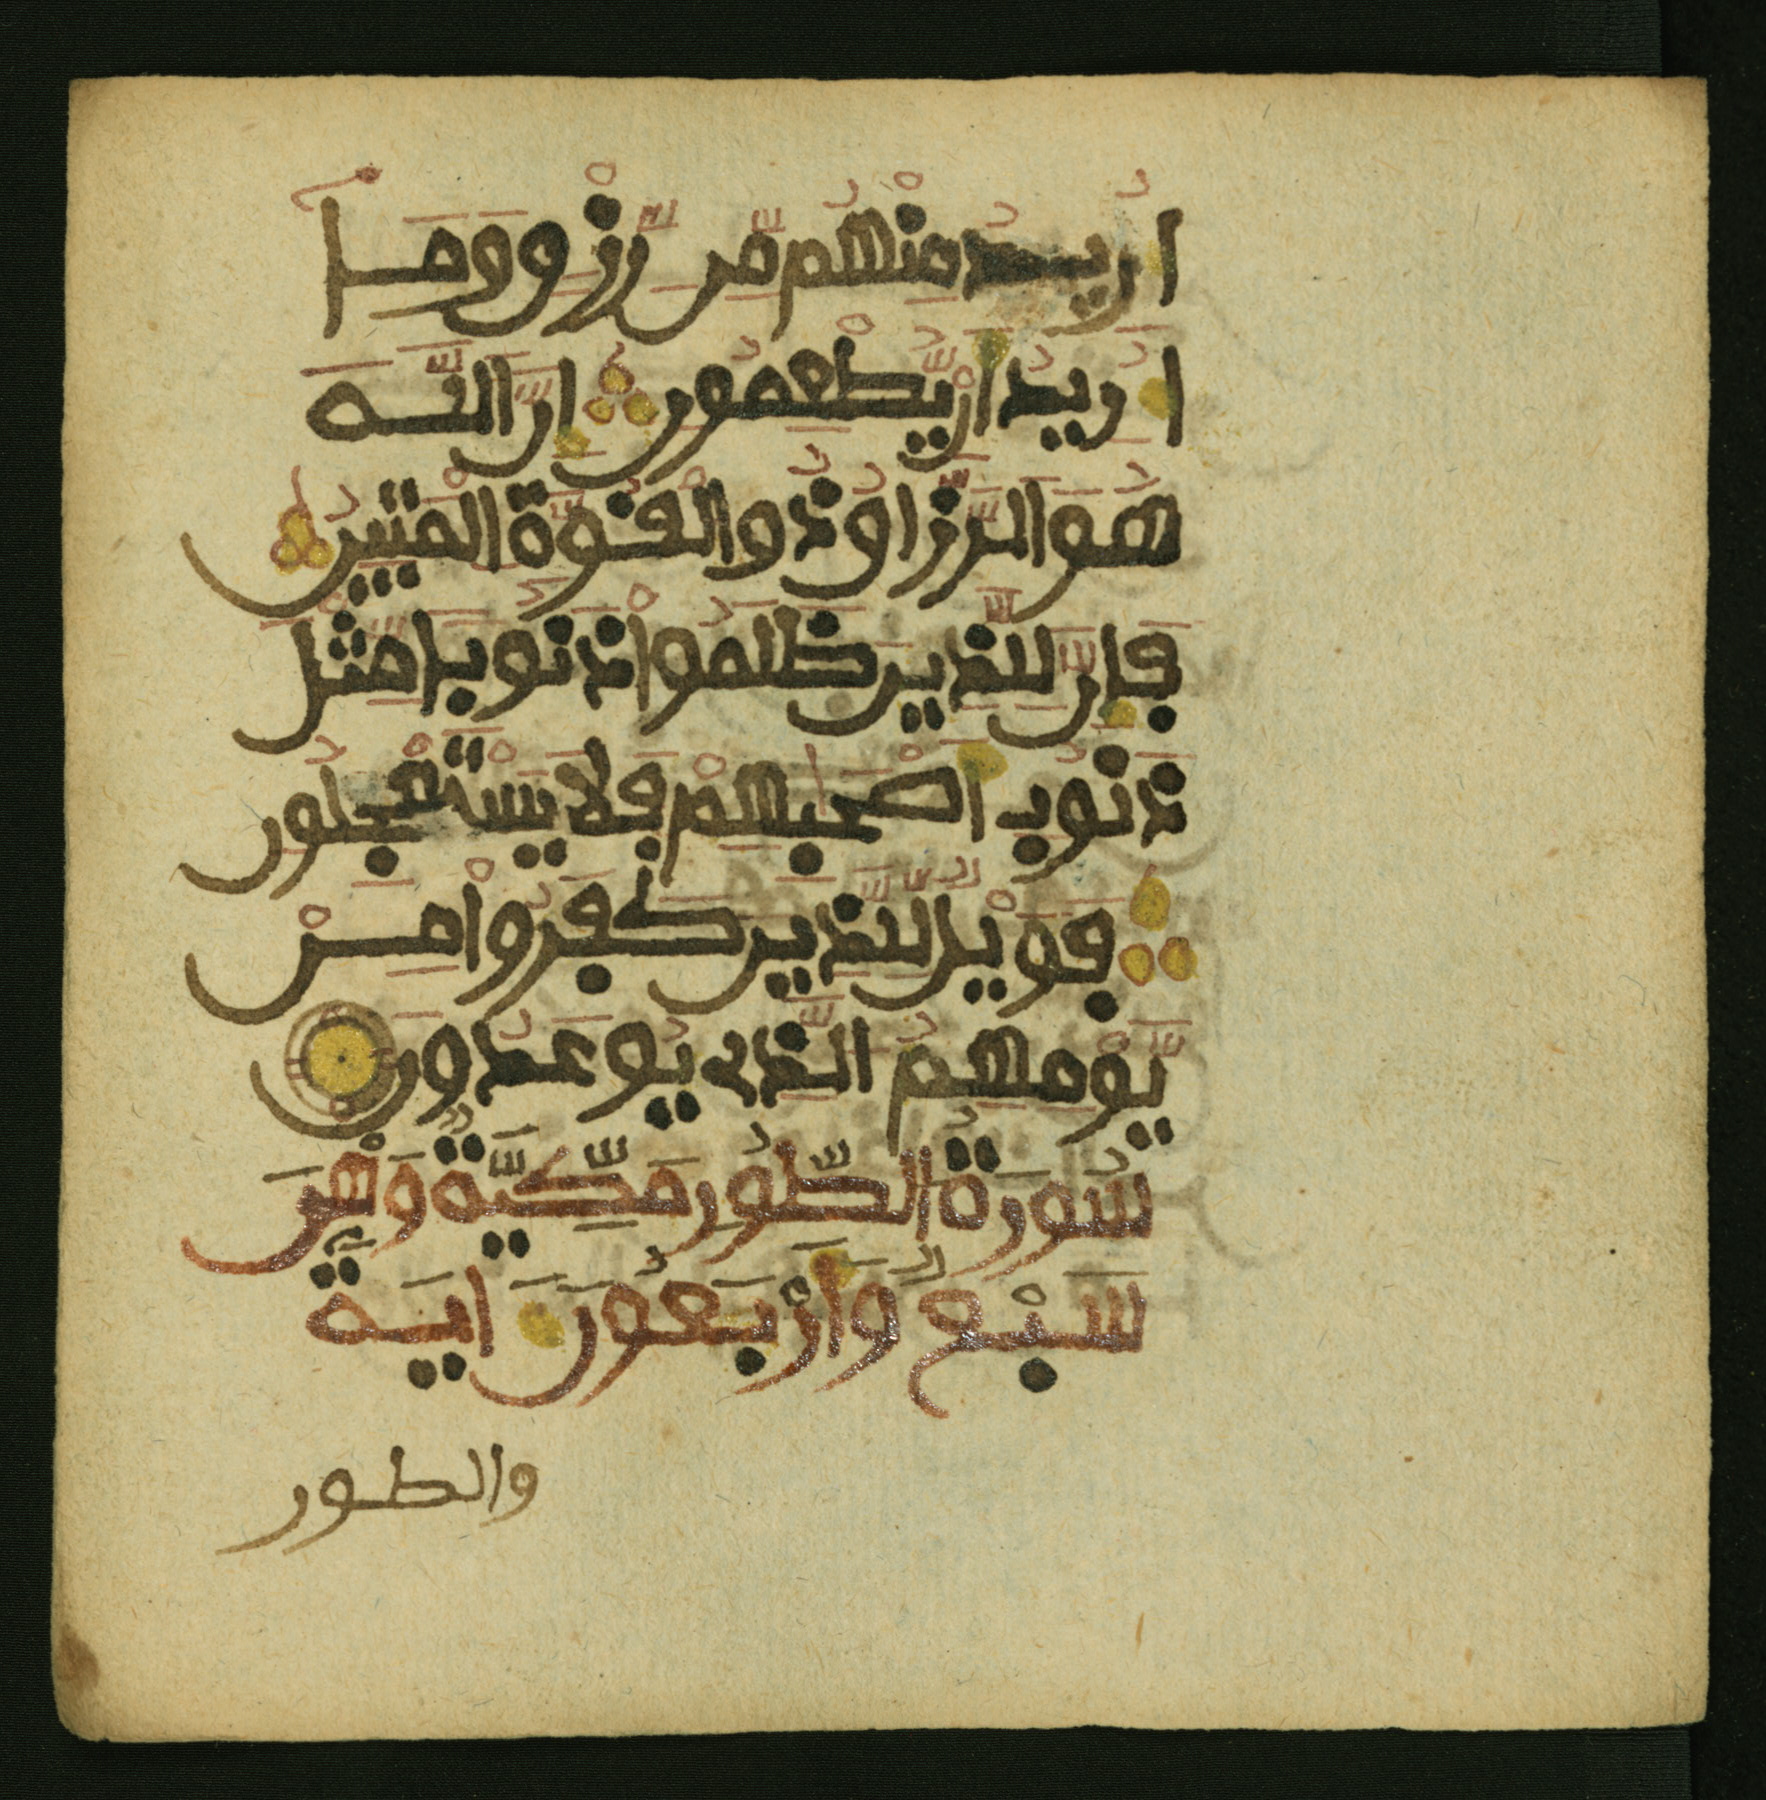 ارِيدُ مِنْهُم مِّن رِّزْقٍ وَمَا
أُرِيدُ أَنْ يُّطْعِمُونِ إِنَّ اللَّهَ
هُوَ الرَّزَّاقُ ذُو الْقُوَّةِ الْمَتِينُ
فَإِنَّ لِلَّذِينَ ظَلَمُواْ ذَنُوباً مِثْلَ
ذَنُوبِ أَصْحَٰبِهِمْ فَلَا يَسْتَعْجِلُونِ
فَوَيْلٌ لِّلَّذِينَ كَفَرُواْ مِنْ
يَّوْمِهِمُ الَّذِي يُوعَدُونَ
سُورَةُ الطُّورِ مَكِّيَّةٌ وَهْيَ
سَبْعٌ وَأَرْبَعُونَ ايَةً
والطور